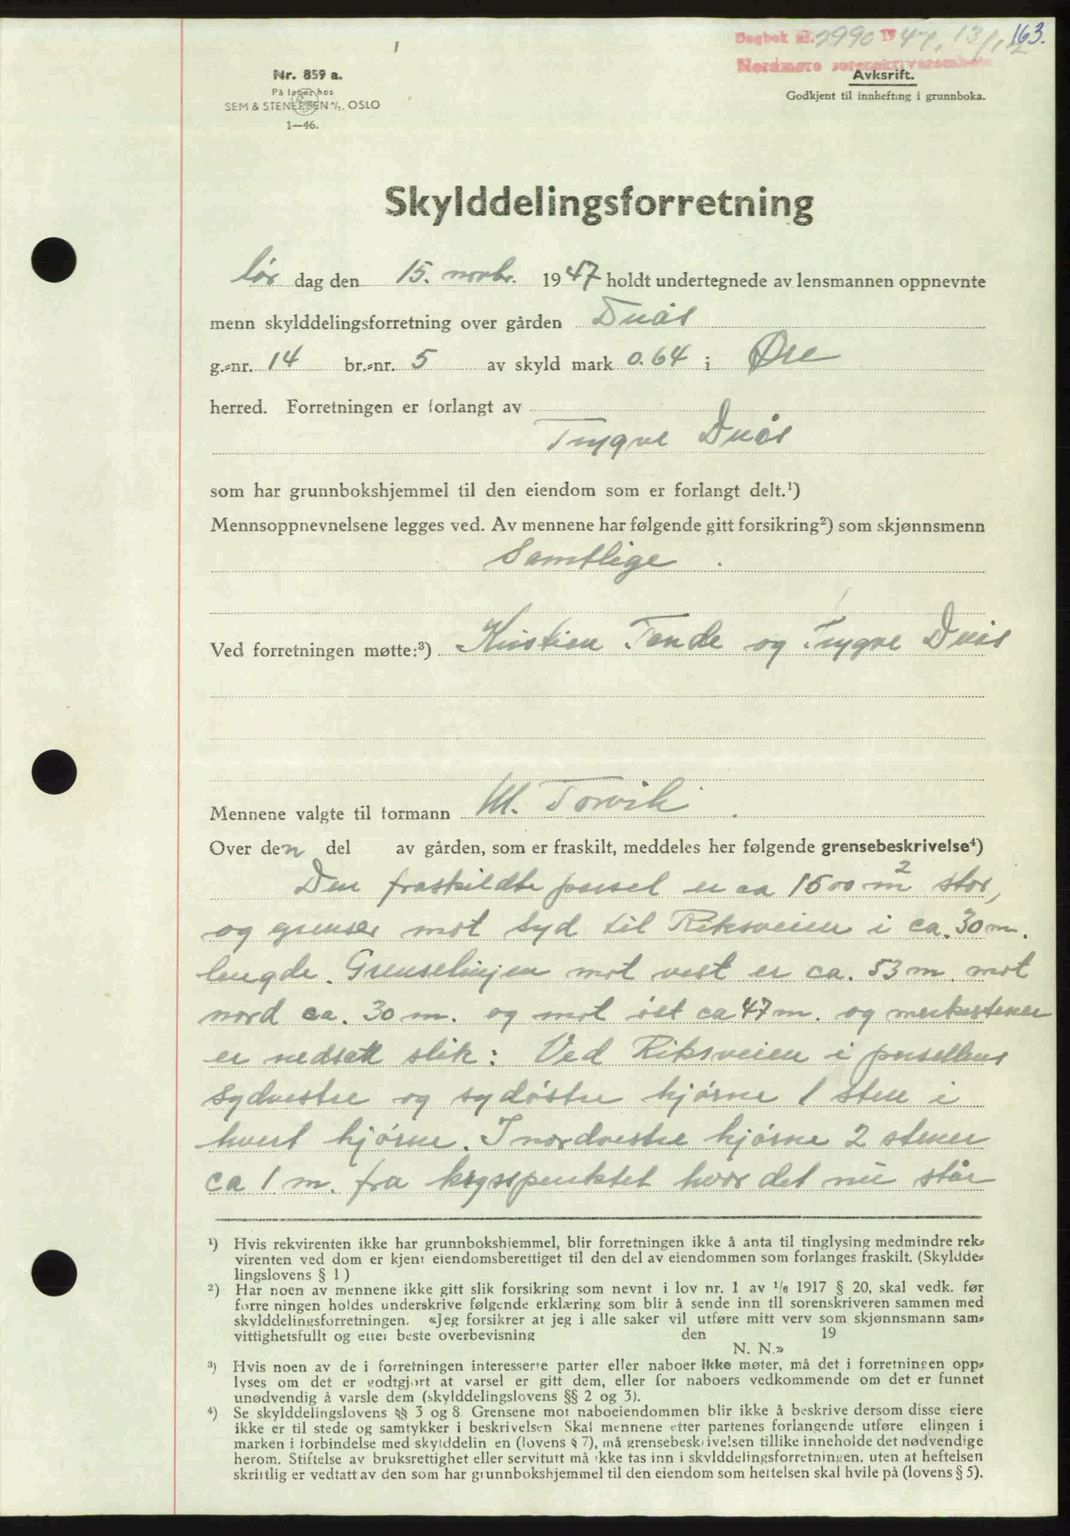 163.
Dagbok nr. 2990 1947, 13/12
Nordmøre sorenskriverembete
Nr. 859 a.
På lager hos
SEM & STENERSEN A/S, OSLO
1—46.
Avksrift.
Godkjent til innhefting i grunnboka.
Skylddelingsforretning
lør dag den 15. novbr. 1947 holdt undertegnede av lensmannen oppnevnte
menn skylddelingsforretning over gården Duås
g.-nr. 14 br.-nr. 5 av skyld mark 0.64 i Øre
herred. Forretningen er forlangt av
Trygve Duås
som har grunnbokshjemmel til den eiendom som er forlangt delt.¹)
Mennsoppnevnelsene legges ved. Av mennene har følgende gitt forsikring²) som skjønnsmenn
Samtlige.
Ved forretningen møtte:³) Kristian Tende og Trygve Duås
Mennene valgte til formann M. Torvik.
Over den del av gården, som er fraskilt, meddeles her følgende grensebeskrivelse⁴)
Den fraskildte parsel er ca 1500 m² stor,
og grenser mot syd til Riksveien i ca. 30 m.
lengde. Grenselinjen mot vest er ca. 53 m. mot
nord ca. 30 m. og mot öst ca 47 m. og merkestener
er nedsatt slik: Ved Riksveien i parsellens
sydvestre og sydöstre hjörne 1 sten i
hvert hjörne. I nordvestre hjörne 2 stener
ca 1 m. fra krysspunktet hvor det nu står
¹) Hvis rekvirenten ikke har grunnbokshjemmel, blir forretningen ikke å anta til tinglysing medmindre rek-
virenten ved dom er kjent eiendomsberettiget til den del av eiendommen som forlanges fraskilt. (Skyldde-
lingslovens § 1)
²) Har noen av mennene ikke gitt slik forsikring som nevnt i lov nr. 1 av 1/6 1917 § 20, skal vedk. før
forre ningen holdes underskrive følgende erklæring som blir å sende inn til sorenskriveren sammen med
skylddelingsforretningen. «Jeg forsikrer at jeg i alle saker vil utføre mitt verv som skjønnsmann sam-
vittighetsfullt og etter beste overbevisning den 19
N. N.»
³) Hvis noen av de i forretningen interesserte parter eller naboer ikke møter, må det i forretningen opp-
lyses om det er godtgjort at varsel er gitt dem, eller for naboers vedkommende om det er funnet
unødvendig å varsle dem (skylddelingslovens §§ 2 og 3).
⁴) Se skylddelingslovens §§ 3 og 8 Grensene mot naboeiendommen blir ikke å beskrive dersom disse eiere
ikke er til stede og samtykker i beskrivelsen Skal mennene etter partenes forlangende utføre elingen i
marken i forbindelse med skylddelin en (lovens § 7), må grensebeskrivelsen tillike inneholde det nødvendige
herom. Stiftelse av bruksrettighet eller servitutt må ikke tas inn i skylddelingsforretningen. uten at heftelsen
skriftlig er vedtatt av den som har grunnbokshjemmel til den eiendom som heftelsen skal hvile på (lovens § 5).